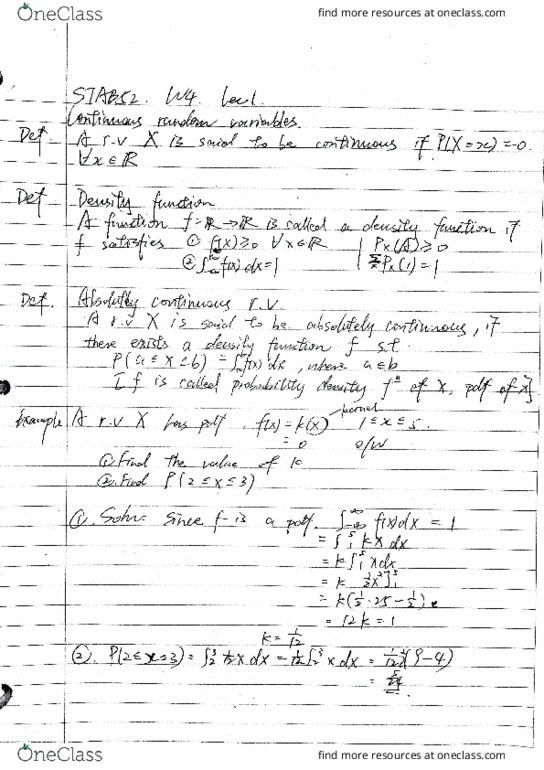 OneClass
find more resources at oneclass.com
STAB52. W4. Lec 1.
Continuous random variables.
Def A r.v X is said to be continuous if P(X=x)=0.
∀x∈ℝ
Def Density function
A function f=ℝ→ℝ is called a density function if
f satisfies ① f(x)≥0 ∀x∈ℝ | Px(A)≥0
② ∫_{-∞}^{∞} f(x)dx=1 | Px(1)=1
Def. Absolutely continuous r.v.
A r.v X is said to be absolutely continuous, if
there exists a density function f s.t.
P(a≤x≤b) = ∫f(x)dx, where a≤b
[f is called probability density fⁿ of X, pdf of X]
kernel
Example A r.v X has pdf. f(x)=k(x) 1≤x≤5.
=0 o/w
① Find the value of k
② Find P(2≤x≤3)
①. Soln: Since f is a pdf. ∫_{-∞}^{∞} f(x)dx = 1
= ∫_1^5 kx dx
= k∫_1^5 x dx
= k ½x²]_1^5
= k(½·25-½)
= 12k = 1
k=1/12
②. P(2≤x≤3) = ∫_2^3 1/12 x dx = 1/12 ∫_2^3 x dx = (9-4)
= 5/24
OneClass
find more resources at oneclass.com